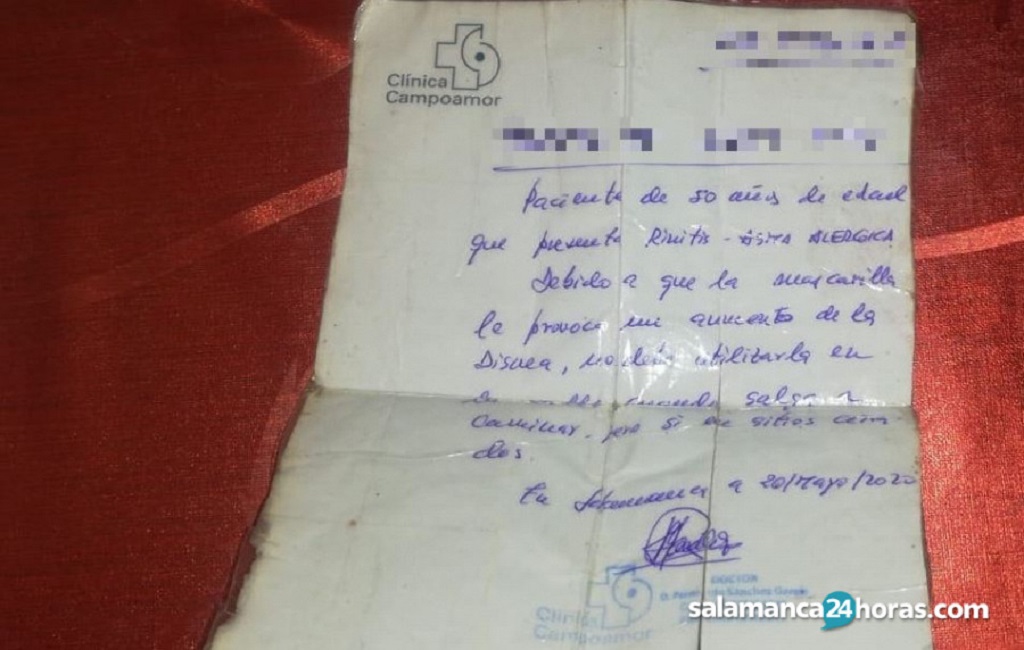 Clínica
Campoamor
Paciente de 50 años de edad
que presenta Rinitis - ASMA ALERGICA
Debido a que la mascarilla
le provoca un aumento de la
Disnea, no debe utilizarla en
la calle cuando salga a
Caminar, pero si en sitios cerra
dos.
En Salamanca a 20/Mayo/2020
DOCTOR
Sánchez
Clínica
Campoamor
salamanca24horas.com